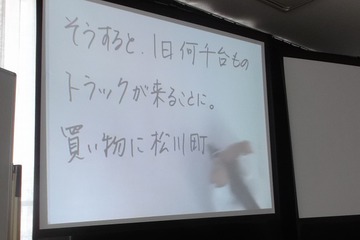 そうすると、1日何千台もの
トラックが来ることに。
買い物に松川町